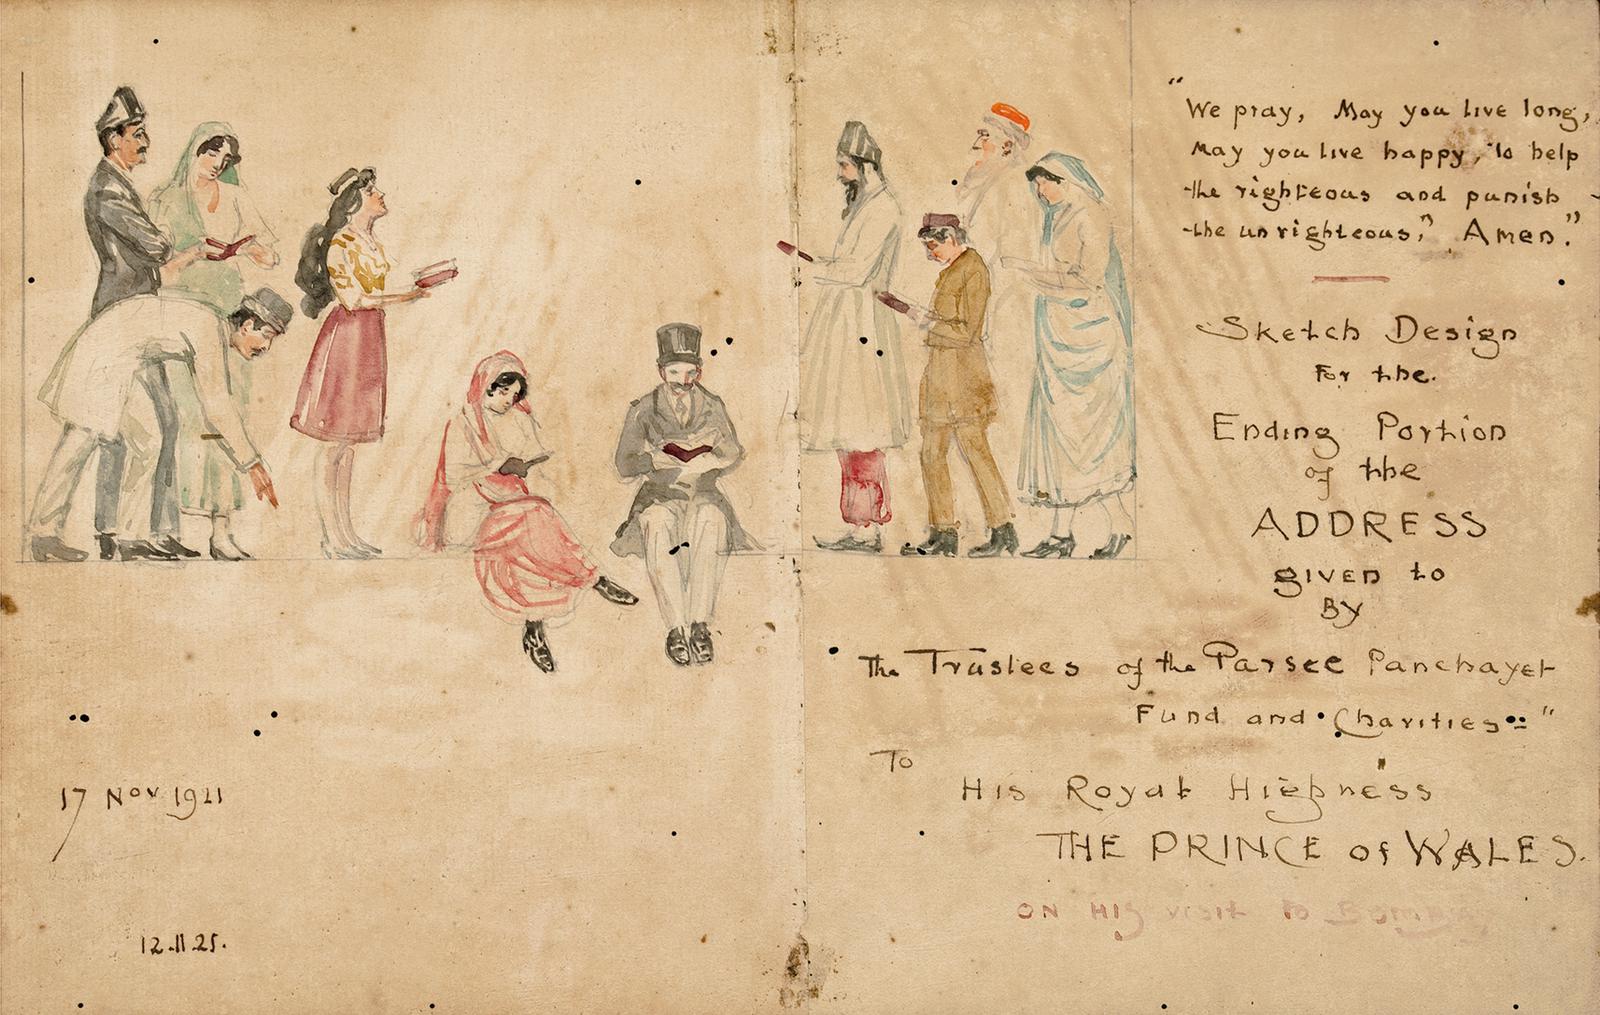 "We pray, May you live long,
May you live happy, to help
the righteous and punish
the unrighteous," Amen."
Sketch Design
For the.
Ending Portion
of the
ADDRESS
given to
By
The Trustees of the Parsee Panchayet
Fund and Charities"
To
His Royal Highness
THE PRINCE of WALES.
ON HIS visit to Bombay
17 Nov 1921
12.11.21.